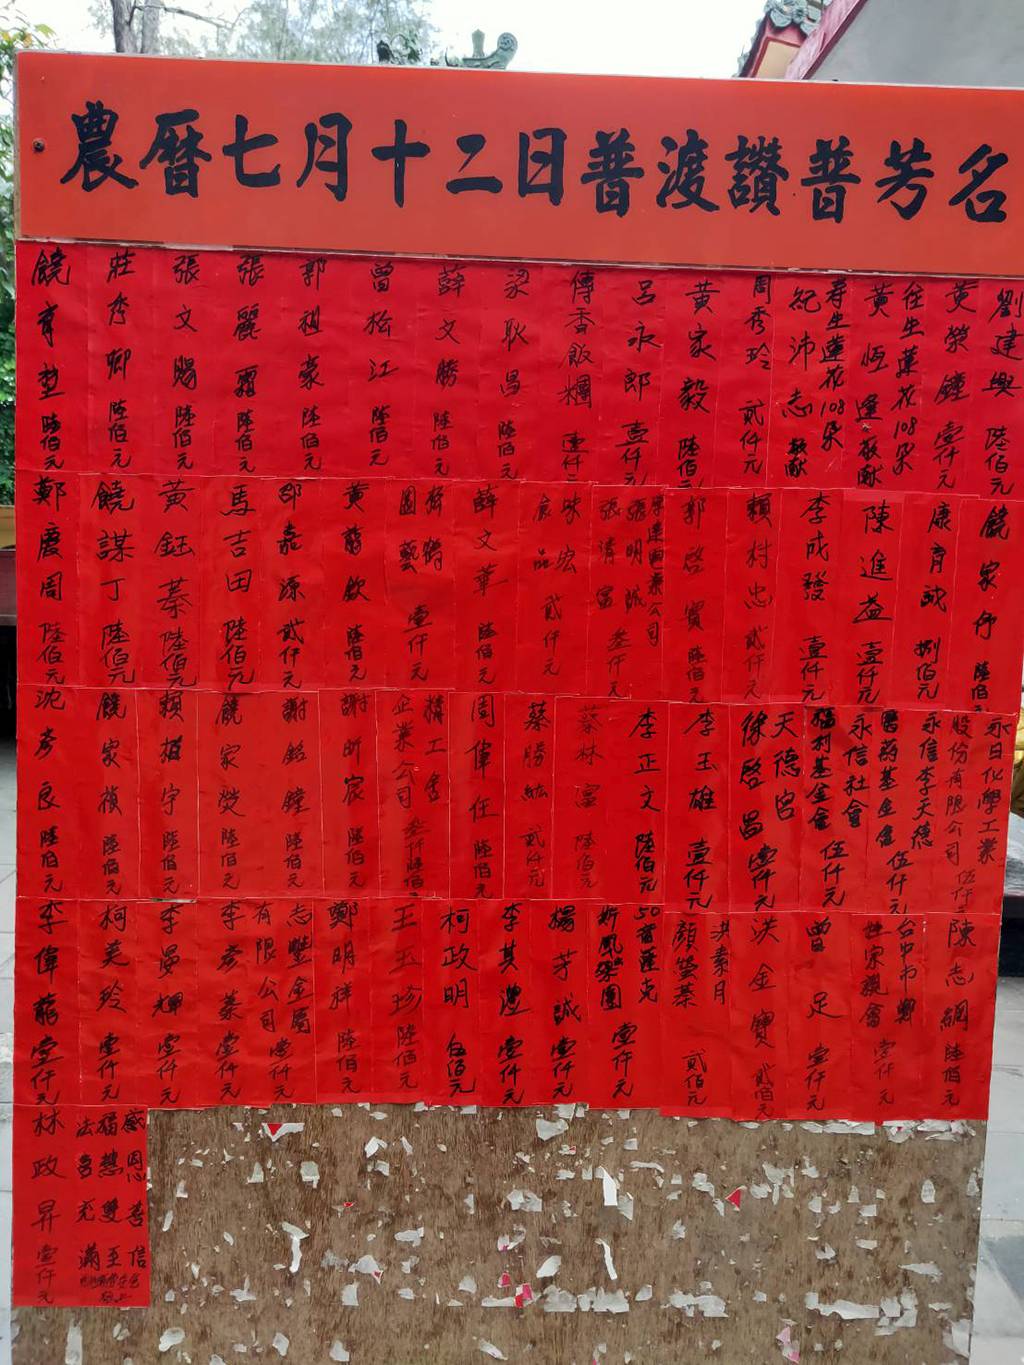 農曆七月十二日普渡讚普芳名
饒育堃 陸佰元
莊秀卿 陸佰元
張文賜 陸佰元
張麗霜 陸佰元
郭祖豪 陸佰元
曾松江 陸佰元
薛文勝 陸佰元
梁耿昌 陸佰元
傳香飯糰 壹仟元
呂永郎 壹仟元
黃家毅 陸佰元
周秀玲 貳仟元
壽生蓮花108朵
紀沛志 敬獻
往生蓮花108朵
黃恆逢 敬獻
黃榮鐘 壹仟元
劉建興 陸佰元
鄭慶周 陸佰元
饒謀丁 陸佰元
黃鈺蓁 陸佰元
馬吉田 陸佰元
邵嘉源 貳仟元
黃蔚欽 陸佰元
園藝 壹仟元
薛文華 陸佰元
味宏
食品 貳仟元
張明誠
張清富 叁仟元
郭啓寶 陸佰元
賴村忠 貳仟元
李成發 壹仟元
陳進益 壹仟元
康育誠 捌佰元
饒家伃 陸佰元
沈彥良 陸佰元
饒家禎 陸佰元
賴栢宇 陸佰元
饒家熒 陸佰元
謝銘鐘 陸佰元
謝昕宸 陸佰元
精工舍
企業公司 叁仟陸佰元
周偉任 陸佰元
蔡勝紘 貳仟元
蔡林富 陸佰元
李正文 陸佰元
李玉雄 壹仟元
天德宮
徐啓昌 壹仟元
永信社會
福利基金會 伍仟元
永信李天德
醫葯基金會 伍仟元
永日化學工業
股份有限公司 伍仟元
李偉龍 壹仟元
柯美玲 壹仟元
李曼輝 壹仟元
李彥蓁 壹仟元
志豐金屬
有限公司 壹仟元
鄭明祥 陸佰元
王玉珍 陸佰元
柯政明 伍佰元
李其澧 壹仟元
楊芽誠 壹仟元
50首薩克
斯風樂團 壹仟元
洪素月
顏瑩蓁 貳佰元
洪金寶 貳佰元
曾足 壹仟元
台中市鄭
姓宗親會 壹仟元
陳志綢 陸佰元
林政昇 壹仟元
感恩善信
福慧雙至
法喜充滿